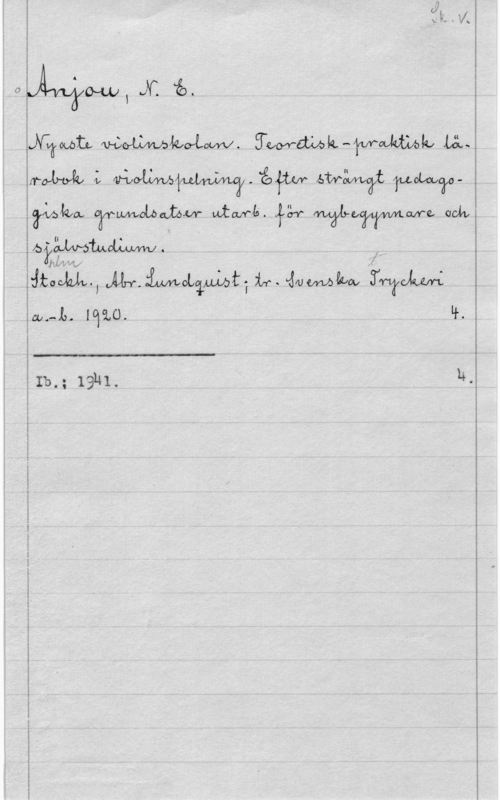 Sk. V.
Anjou, N. E.
Nyaste violinskolan. Teoretisk-praktisk lä-
robok i violinspelning. Efter strängt pedago-
giska grundsatser utarb. för nybegynnare och
självstudium.
Stockh., Abr. Lundquist; tr. Svenska Tryckeri
a.-b. 1920. 4.
Ib.; 1941. 4.